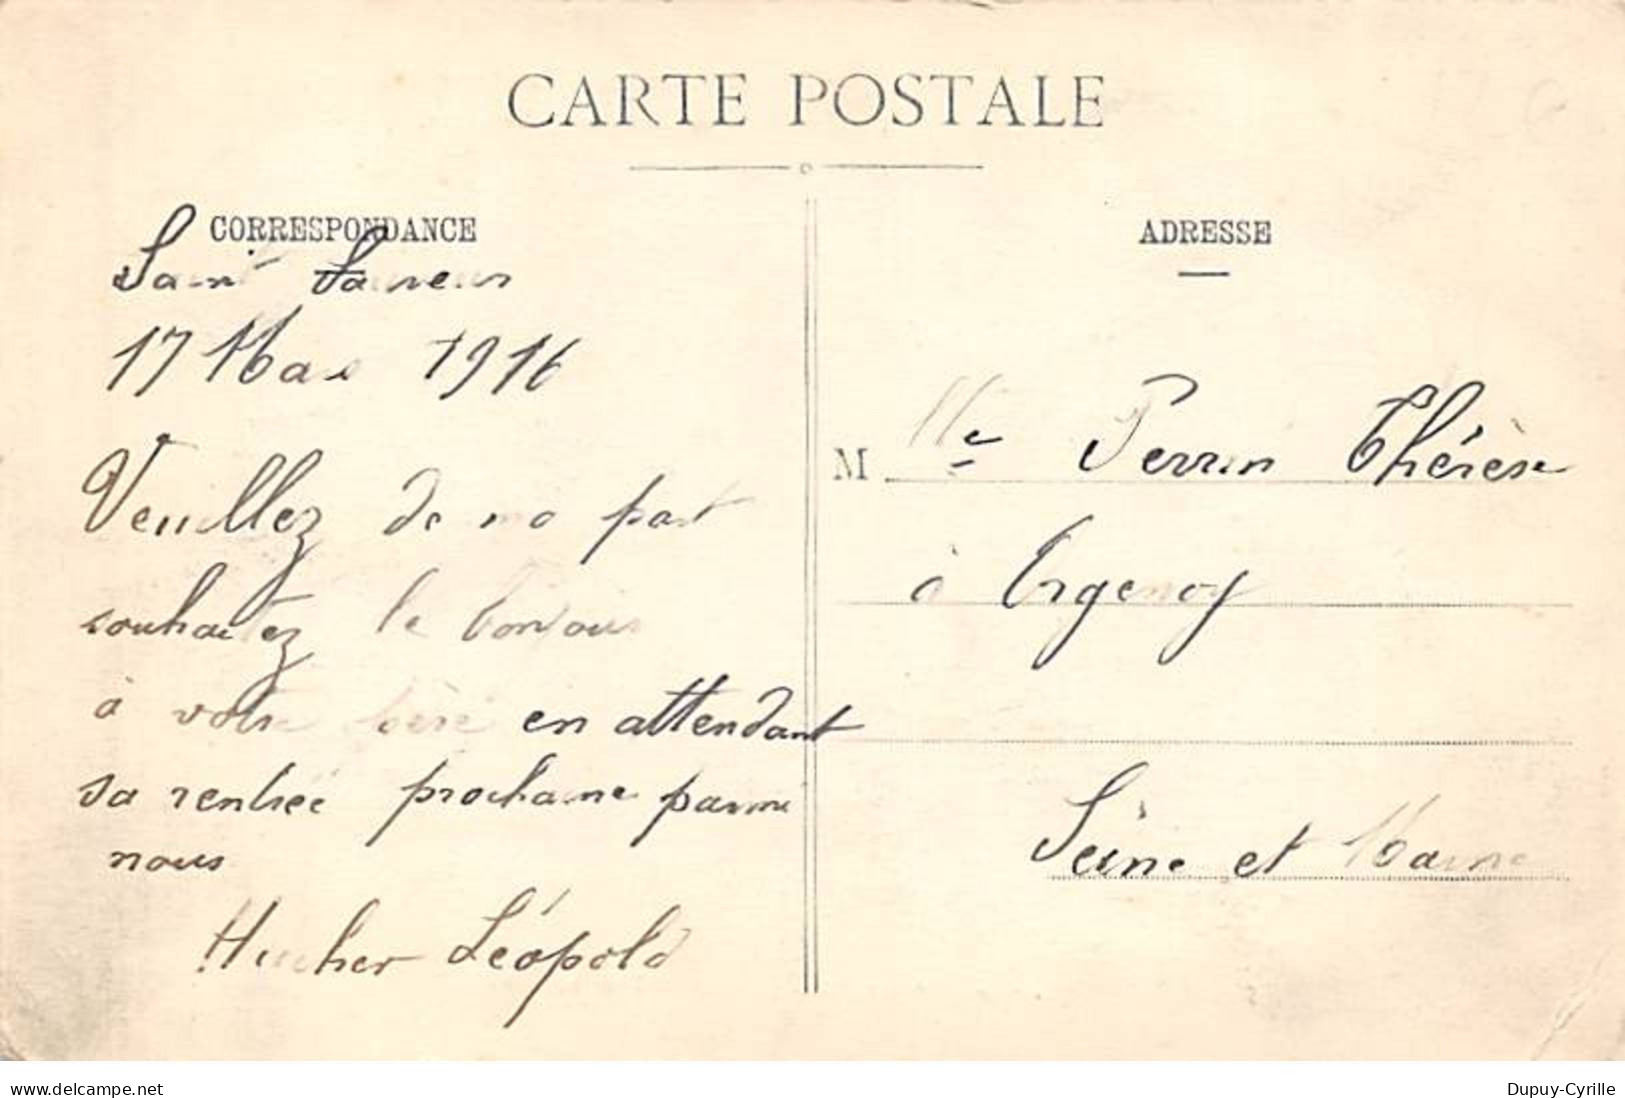 CARTE POSTALE
CORRESPONDANCE
Saint Sauveur
17 Mai 1916
Veuillez de ma part
souhaitez le bonjour
à votre père en attendant
sa rentrée prochaine parmi
nous
Hucher Léopold
ADRESSE
M lle Perrin Thérèse
à Orgenoy
Seine et Marne
www.delcampe.net
Dupuy-Cyrille